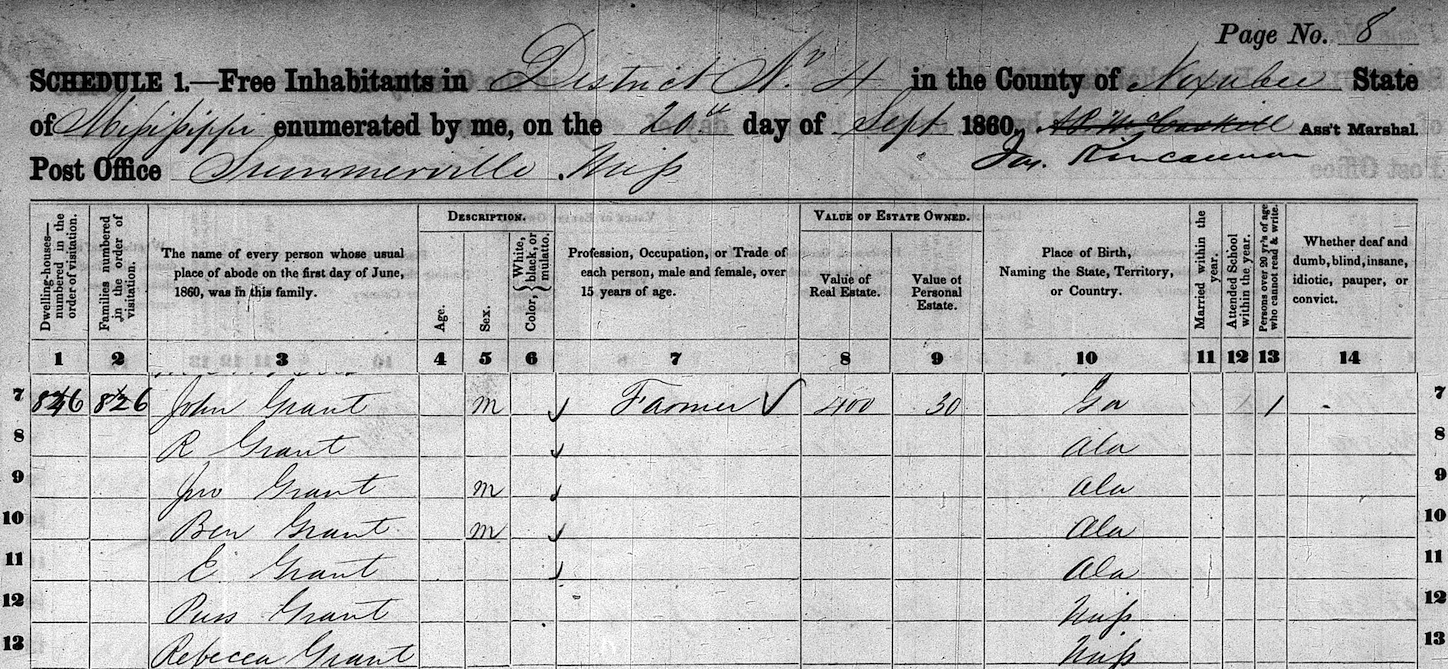 Page No. 8
SCHEDULE 1.—Free Inhabitants in District No 4 in the County of Noxubee State
of Mississippi enumerated by me, on the 20th day of Sept 1860. Ass't Marshal.
Post Office Summerville Miss Jas. Kincannon
Dwelling-houses—numbered in the order of visitation.
Families numbered in the order of visitation.
The name of every person whose usual place of abode on the first day of June, 1860, was in this family.
DESCRIPTION.
Age.
Sex.
Color, { White, black, or mulatto.
Profession, Occupation, or Trade of each person, male and female, over 15 years of age.
VALUE OF ESTATE OWNED.
Value of Real Estate.
Value of Personal Estate.
Place of Birth, Naming the State, Territory, or Country.
Married within the year.
Attended School within the year.
Persons over 20 yr's of age who cannot read & write.
Whether deaf and dumb, blind, insane, idiotic, pauper, or convict.
1 2 3 4 5 6 7 8 9 10 11 12 13 14
7 826 826 John Grant m Farmer 400 30 Ga / 7
8 R Grant Ala 8
9 Jno Grant m Ala 9
10 Ben Grant m Ala 10
11 E Grant Ala 11
12 Puss Grant Miss 12
13 Rebecca Grant Miss 13